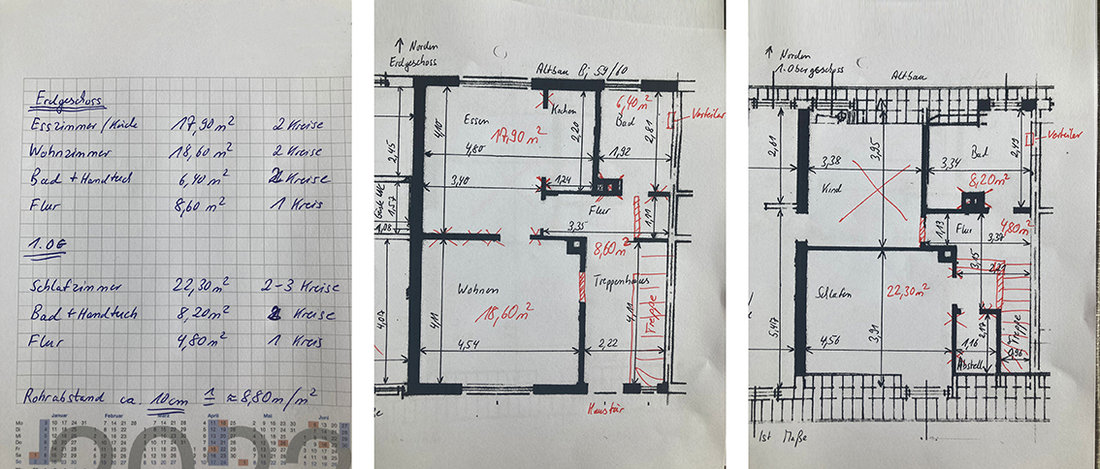 Erdgeschoss
Esszimmer/Küche 17,90 m² 2 Kreise
Wohnzimmer 18,60 m² 2 Kreise
Bad + Handtuch 6,40 m² 2 Kreise
Flur 8,60 m² 1 Kreis
1. OG
Schlafzimmer 22,30 m² 2-3 Kreise
Bad + Handtuch 8,20 m² 2 Kreise
Flur 4,80 m² 1 Kreis
Rohrabstand ca. 10cm ≙ ≈ 8,80 m/m²
Januar Februar März April Mai Juni
Norden
Erdgeschoss
Altbau Bj 59/60
Essen
Kochen
Bad
6,40 m²
Verteiler
17,90 m²
4,10
2,20
2,81
2,45
4,80
1,92
3,40
1,24
1,57
1,08
Flur
3,35
1,11
8,60 m²
Wohnen
Treppenhaus
18,60 m²
Treppe
4,07
4,11
4,11
4,54
2,22
Haustür
Norden
1. Obergeschoss
Altbau
2,01
3,95
2,49
Verteiler
3,38
3,34
Bad
Kind
8,20 m²
Flur
4,80 m²
1,13
3,37
3,15
2,21
Schlafen
22,30 m²
5,47
3,91
4,56
1,16
2,17
Treppe
0,96
Abstell
Ist Maße